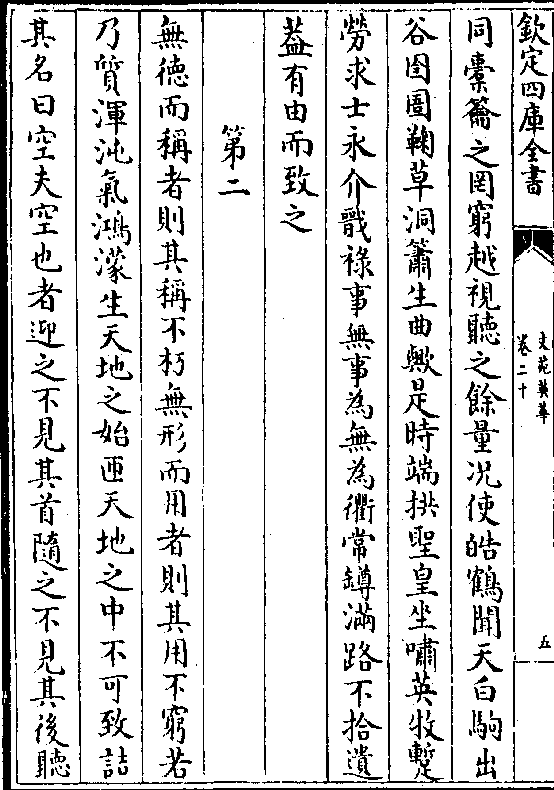 欽定四庫全書
文苑英華
卷二十
五
同橐籥之罔窮越視聽之餘量况使皓鶴聞天白駒出
谷囹圄鞠草洞簫生曲歟是時端拱聖皇坐嘯英牧蹔
勞求士永介戩祿事無事為無為衢常罇滿路不拾遺
葢有由而致之
第二
無德而稱者則其稱不朽無形而用者則其用不窮若
乃質渾沌氣鴻濛生天地之始匝天地之中不可致詰
其名曰空夫空也者迎之不見其首隨之不見其後聽